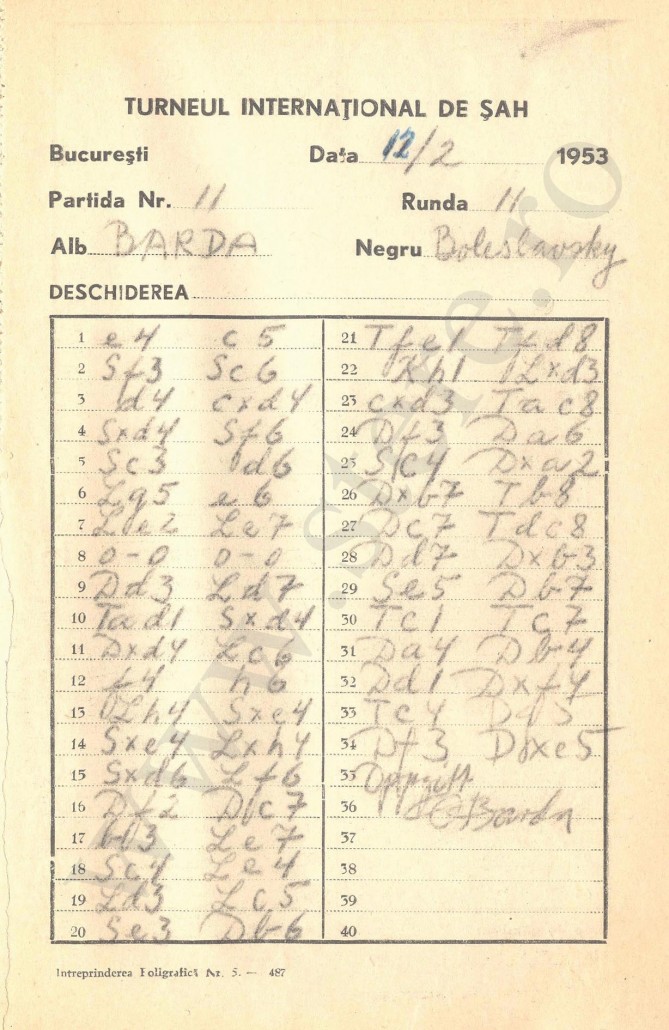 TURNEUL INTERNAŢIONAL DE ŞAH
Bucureşti Data 12/2 1953
Partida Nr. 11 Runda 11
Alb BARDA Negru Boleslavsky
DESCHIDEREA
1 e4 c5
2 Sf3 Sc6
3 d4 cxd4
4 Sxd4 Sf6
5 Sc3 d6
6 Lg5 e6
7 Le2 Le7
8 0-0 0-0
9 Dd3 Ld7
10 Tad1 Sxd4
11 Dxd4 Lc6
12 f4 h6
13 Lh4 Sxe4
14 Sxe4 Lxh4
15 Sxd6 Lf6
16 Df2 Dc7
17 b3 Le7
18 Sc4 Le4
19 Ld3 Lc5
20 Se3 Db6
21 Tfe1 Tfd8
22 Kh1 Lxd3
23 cxd3 Tac8
24 Df3 Da6
25 Sc4 Dxa2
26 Dxb7 Tb8
27 Dc7 Tdc8
28 Dd7 Dxb3
29 Se5 Db7
30 Tc1 Tc7
31 Da4 Db4
32 Dd1 Dxf4
33 Tc4
34 Df3 Dxe5
35 Oppgitt
36 Barda
37
38
39
40
Intreprinderea Poligrafică Nr. 5. — 487